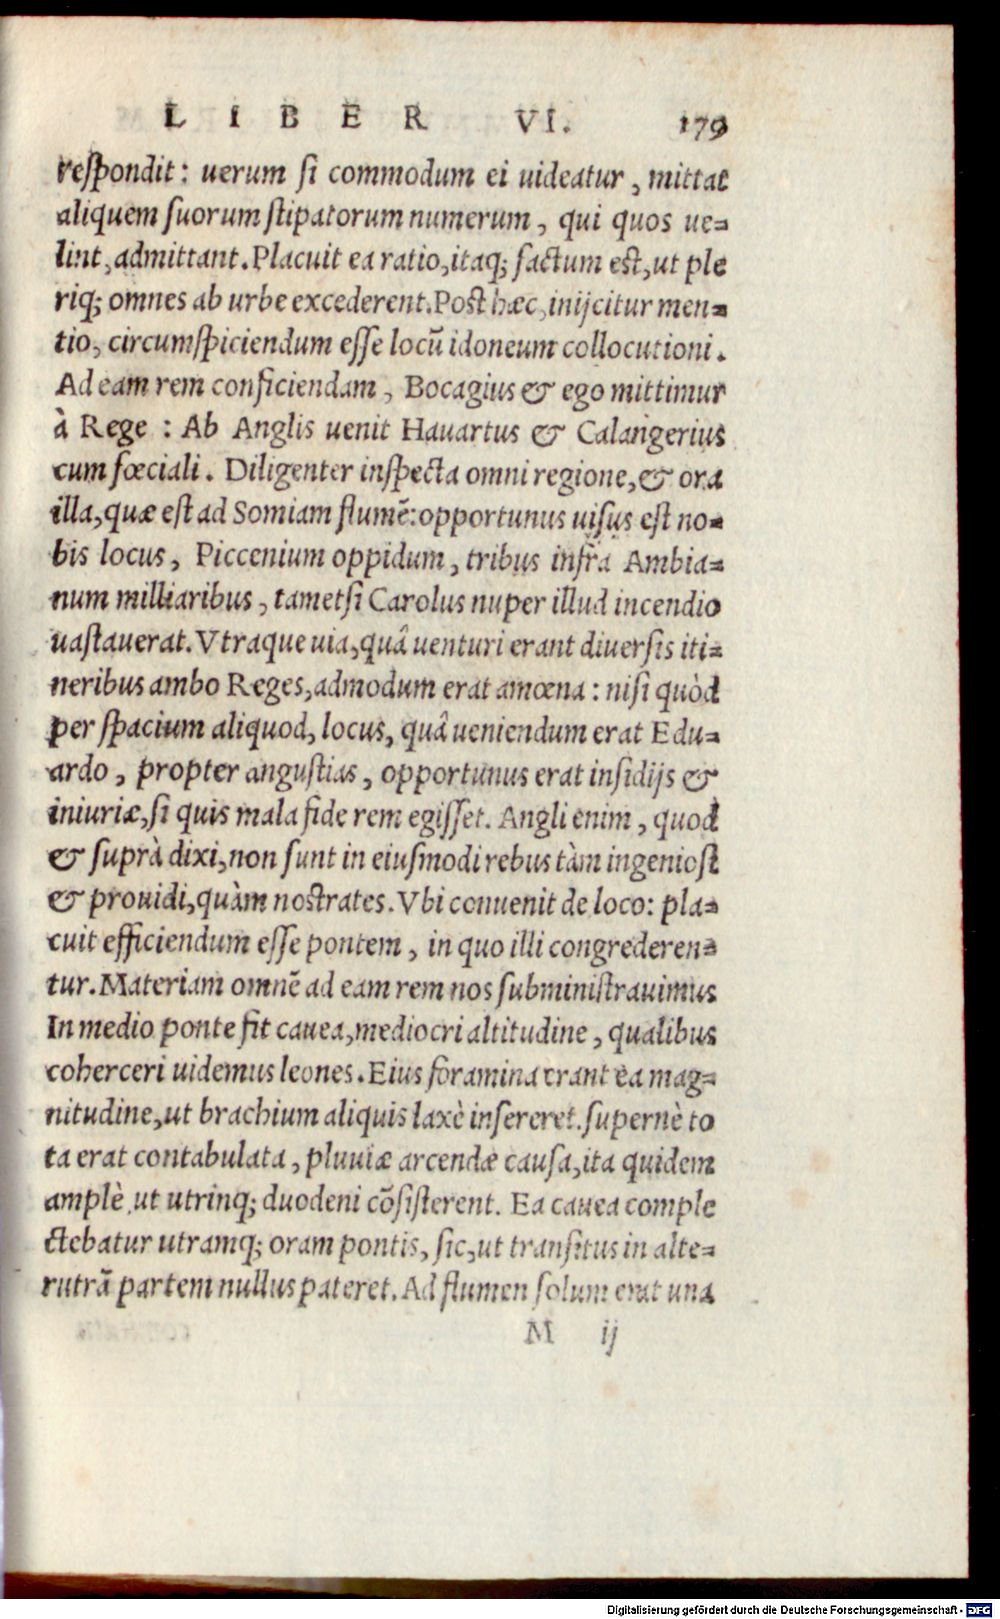 LIBER VI. 179
respondit: uerum si commodum ei uideatur, mittat
aliquem suorum stipatorum numerum, qui quos ue=
lint, admittant. Placuit ea ratio, itaq; factum est, ut ple
riq; omnes ab urbe excederent. Post hæc, inijcitur men=
tio, circumspiciendum esse locū idoneum collocutioni.
Ad eam rem conficiendam, Bocagius & ego mittimur
à Rege : Ab Anglis uenit Havartus & Calangerius
cum fœciali. Diligenter inspecta omni regione, & ora
illa, quæ est ad Somiam flumē: opportunus uisus est no=
bis locus, Piccenium oppidum, tribus infra Ambia=
num milliaribus, tametsi Carolus nuper illud incendio
uastauerat. Vtraque uia, quâ uenturi erant diuersis iti=
neribus ambo Reges, admodum erat amœna: nisi quòd
per spacium aliquod, locus, quâ ueniendum erat Edu=
ardo, propter angustias, opportunus erat insidijs &
iniuriæ, si quis mala fide rem egisset. Angli enim, quod
& suprà dixi, non sunt in eiusmodi rebus tàm ingeniosi
& prouidi, quàm nostrates. Vbi conuenit de loco: pla=
cuit efficiendum esse pontem, in quo illi congrederen=
tur. Materiam omnē ad eam rem nos subministrauimus
In medio ponte fit cauea, mediocri altitudine, qualibus
coherceri uidemus leones. Eius foramina erant ea mag=
nitudine, ut brachium aliquis laxè insereret. supernè to
ta erat contabulata, pluuiæ arcendæ causa, ita quidem
amplè ut utrinq; duodeni cōsisterent. Ea cauea comple
ctebatur utramq; oram pontis, sic, ut transitus in alte=
rutrā partem nullus pateret. Ad flumen solum erat una
M ij
Digitalisierung gefördert durch die Deutsche Forschungsgemeinschaft - DFG